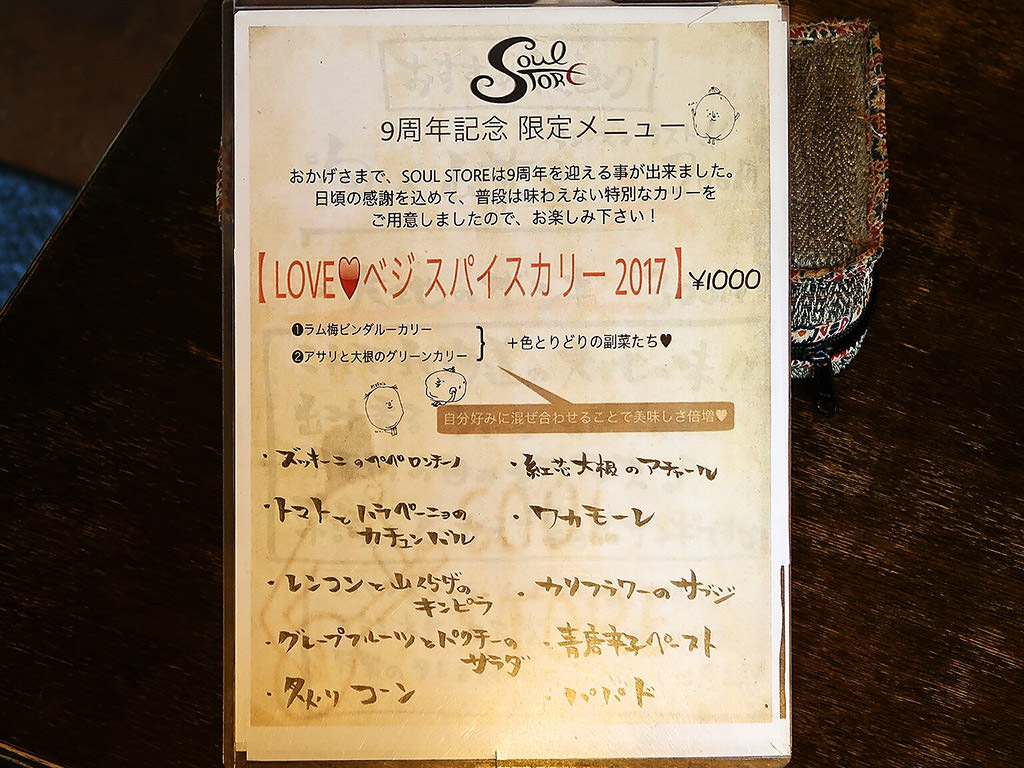 SOUL STORE
9周年記念 限定メニュー
おかげさまで、SOUL STOREは9周年を迎える事が出来ました。
日頃の感謝を込めて、普段は味わえない特別なカリーを
ご用意しましたので、お楽しみ下さい！
【 LOVE♥ベジ スパイスカリー 2017 】¥1000
❶ラム梅ビンダルーカリー
❷アサリと大根のグリーンカリー
＋色とりどりの副菜たち♥
自分好みに混ぜ合わせることで美味しさ倍増♥
・ズッキーニのペペロンチーノ
・紅芯大根のアチャール
・トマトとハラペーニョの
カチュンバル
・ワカモーレ
・レンコンと山くらげの
キンピラ
・カリフラワーのサブジ
・グレープフルーツとパクチーの
サラダ
・青唐辛子ペースト
・タンドリコーン
・パパド